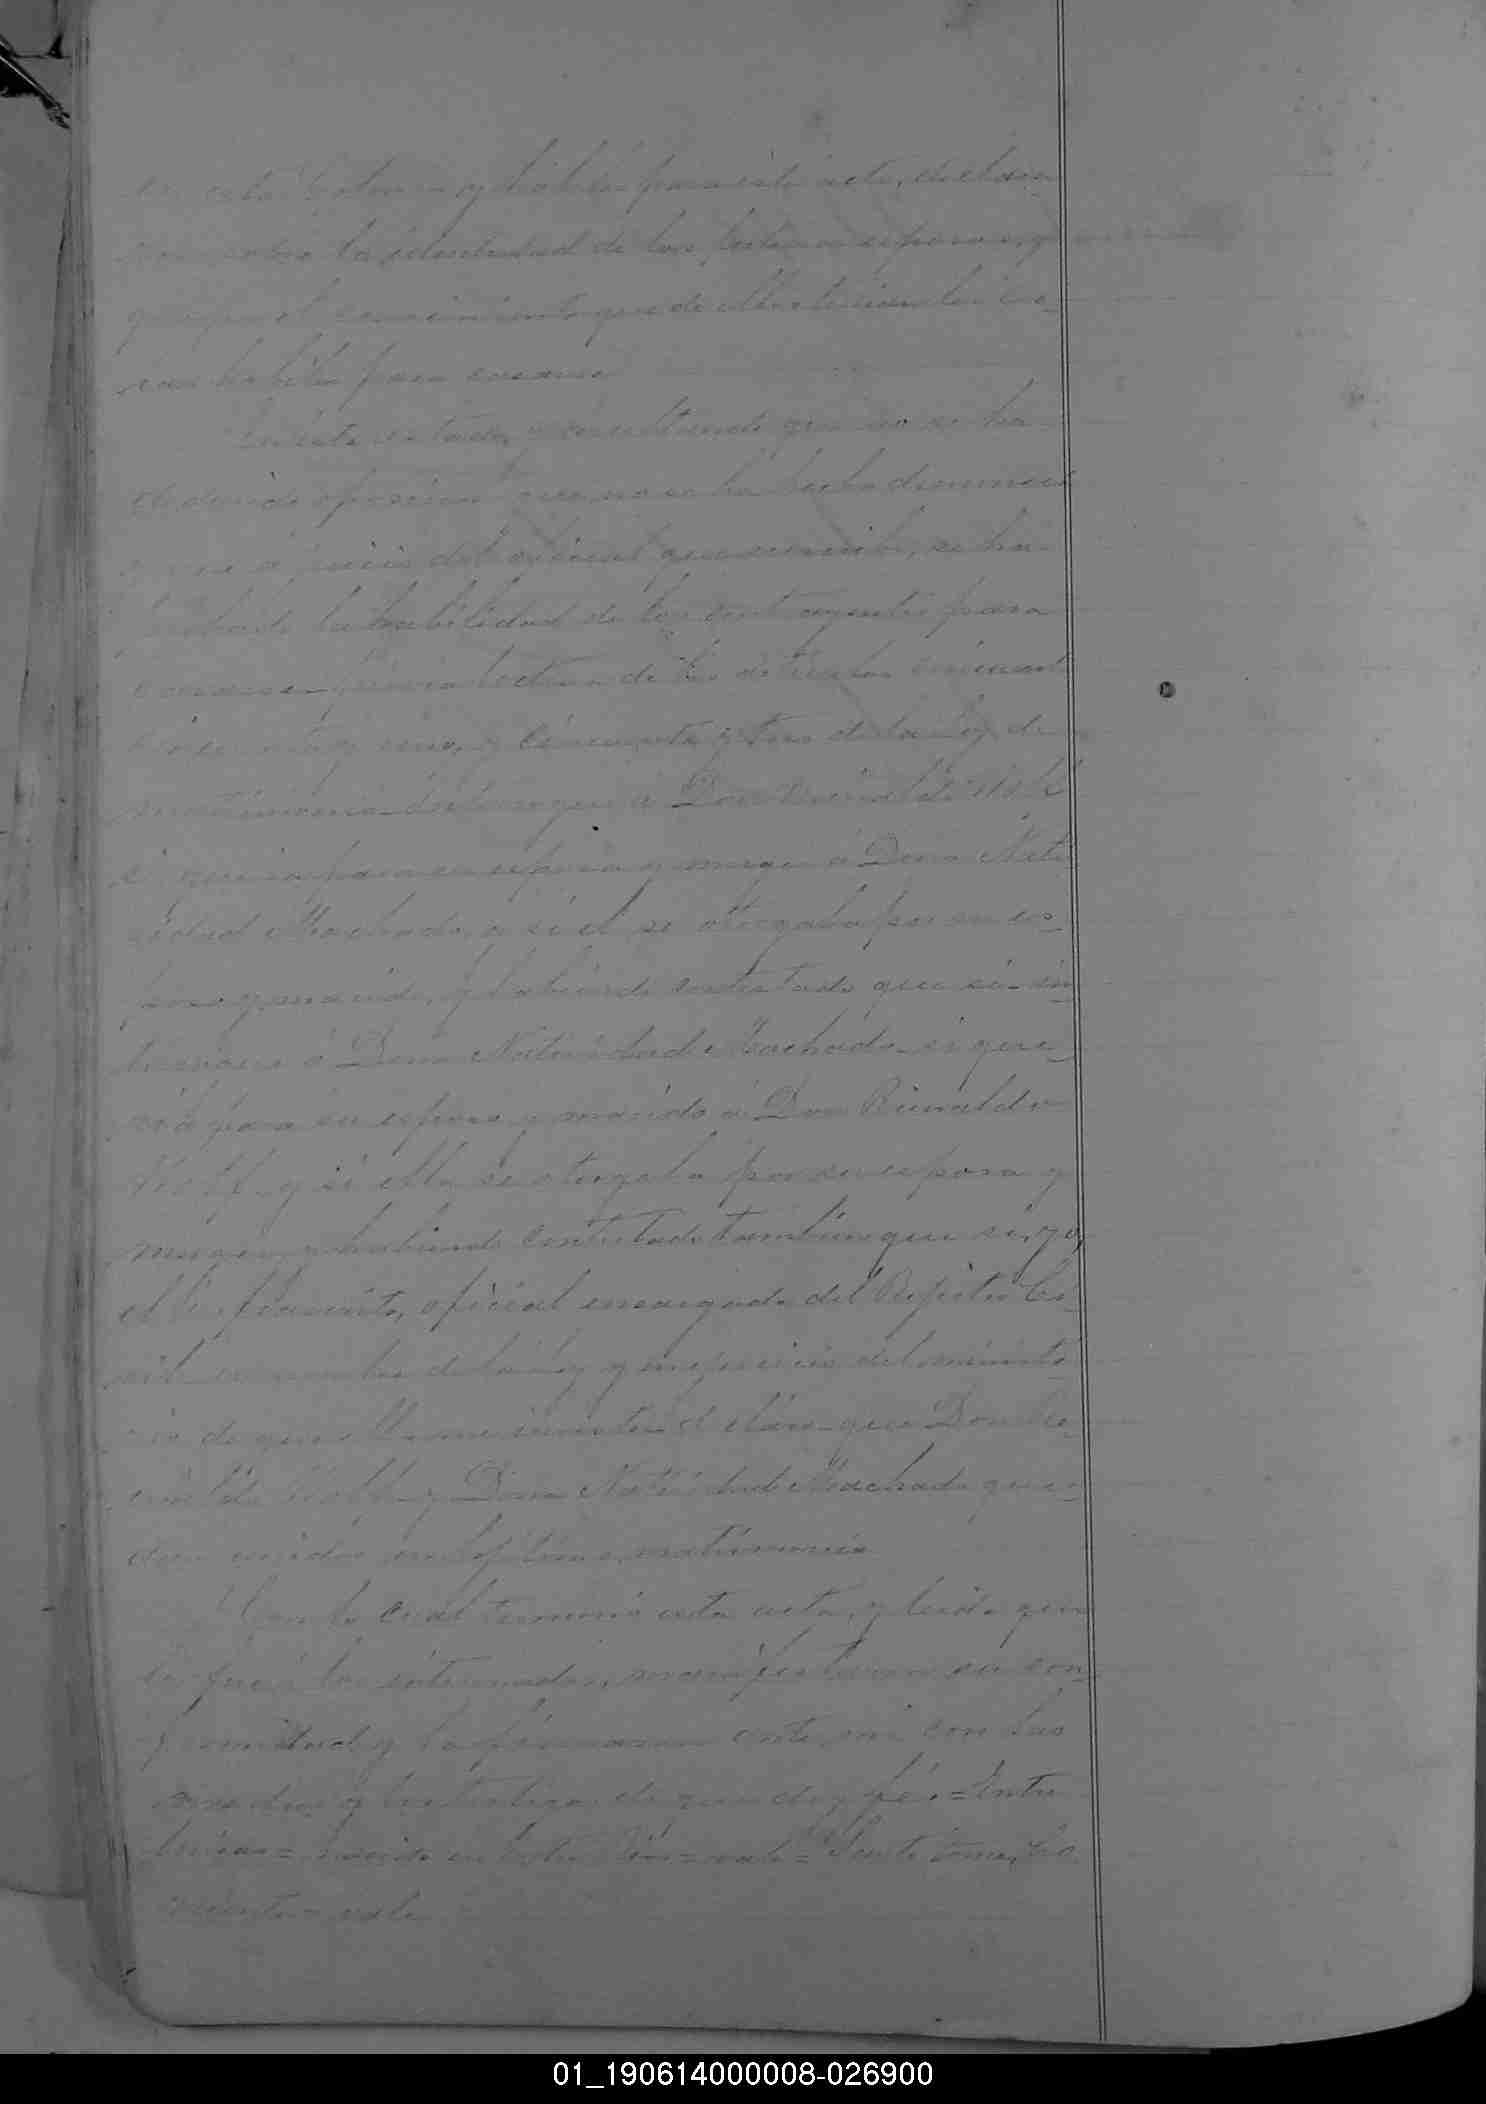 en esta Colonia y hábiles para este acto, declara-
ron sobre la identidad de los futuros esposos, y
que por el conocimiento que de ellos tenian los cre-
ian hábiles para casarse
En este estado, y resultando que no se ha
deducido oposicion, que no se ha hecho denuncia
y que a juicio del oficial que suscribe, se ha
probado la habilidad de los contrayentes para
casarse, previa lectura de los artículos cincuenta
cincuenta y uno, y cincuenta y tres de la Ley de
matrimonio, interrogué á Don Reinaldo Wolf
si queria para su esposa y muger á Dona Nati-
vidad Machado, y si él se otorgaba por su es-
poso y marido, y habiendo contestado que si, in-
terrogué á Dona Natividad Machado si que-
ria para su esposo y marido á Don Reinaldo
Wolf, y si ella se otorgaba por su esposa y
muger, y habiendo contestado tambien que si, yo,
el infrascrito, oficial encargado del Registro Ci-
vil en nombre de la Ley y en ejercicio del ministe-
rio de que ella me inviste, declaro que Don Re-
inaldo Wolf y Dona Natividad Machado que-
dan unidos en legítimo matrimonio
Con lo cual terminó esta acta, y leida que
le fué á los interesados, manifestaron su con-
formidad y la firmaron ante mi con los
y los testigos de que doy fé. = Entre
lineas = = vale =
vale